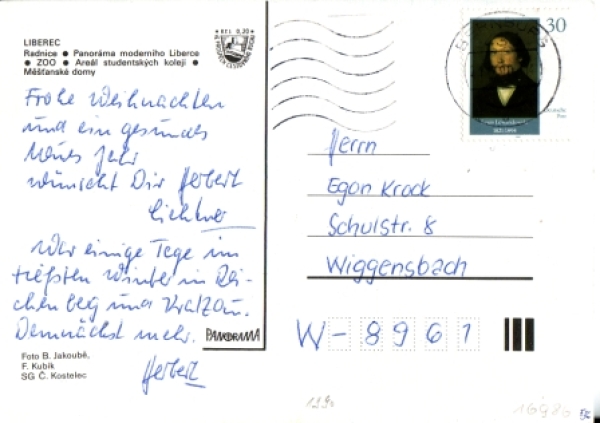 LIBEREC
Radnice • Panoráma moderního Liberce
• ZOO • Areál studentských kolejí •
Měšťanské domy
KčS 0,20
Frohe Weihnachten
und ein gesundes
Neues Jahr
wünscht Dir Herbert
War einige Tage im
tiefsten Winter in Rei-
chenberg und Kratzau.
Demnächst mehr.
Herbert
PANORAMA
Foto B. Jakoubě,
F. Kubík
SG Č. Kostelec
30
Herrn
Egon Krock
Schulstr. 8
Wiggensbach
W-8961